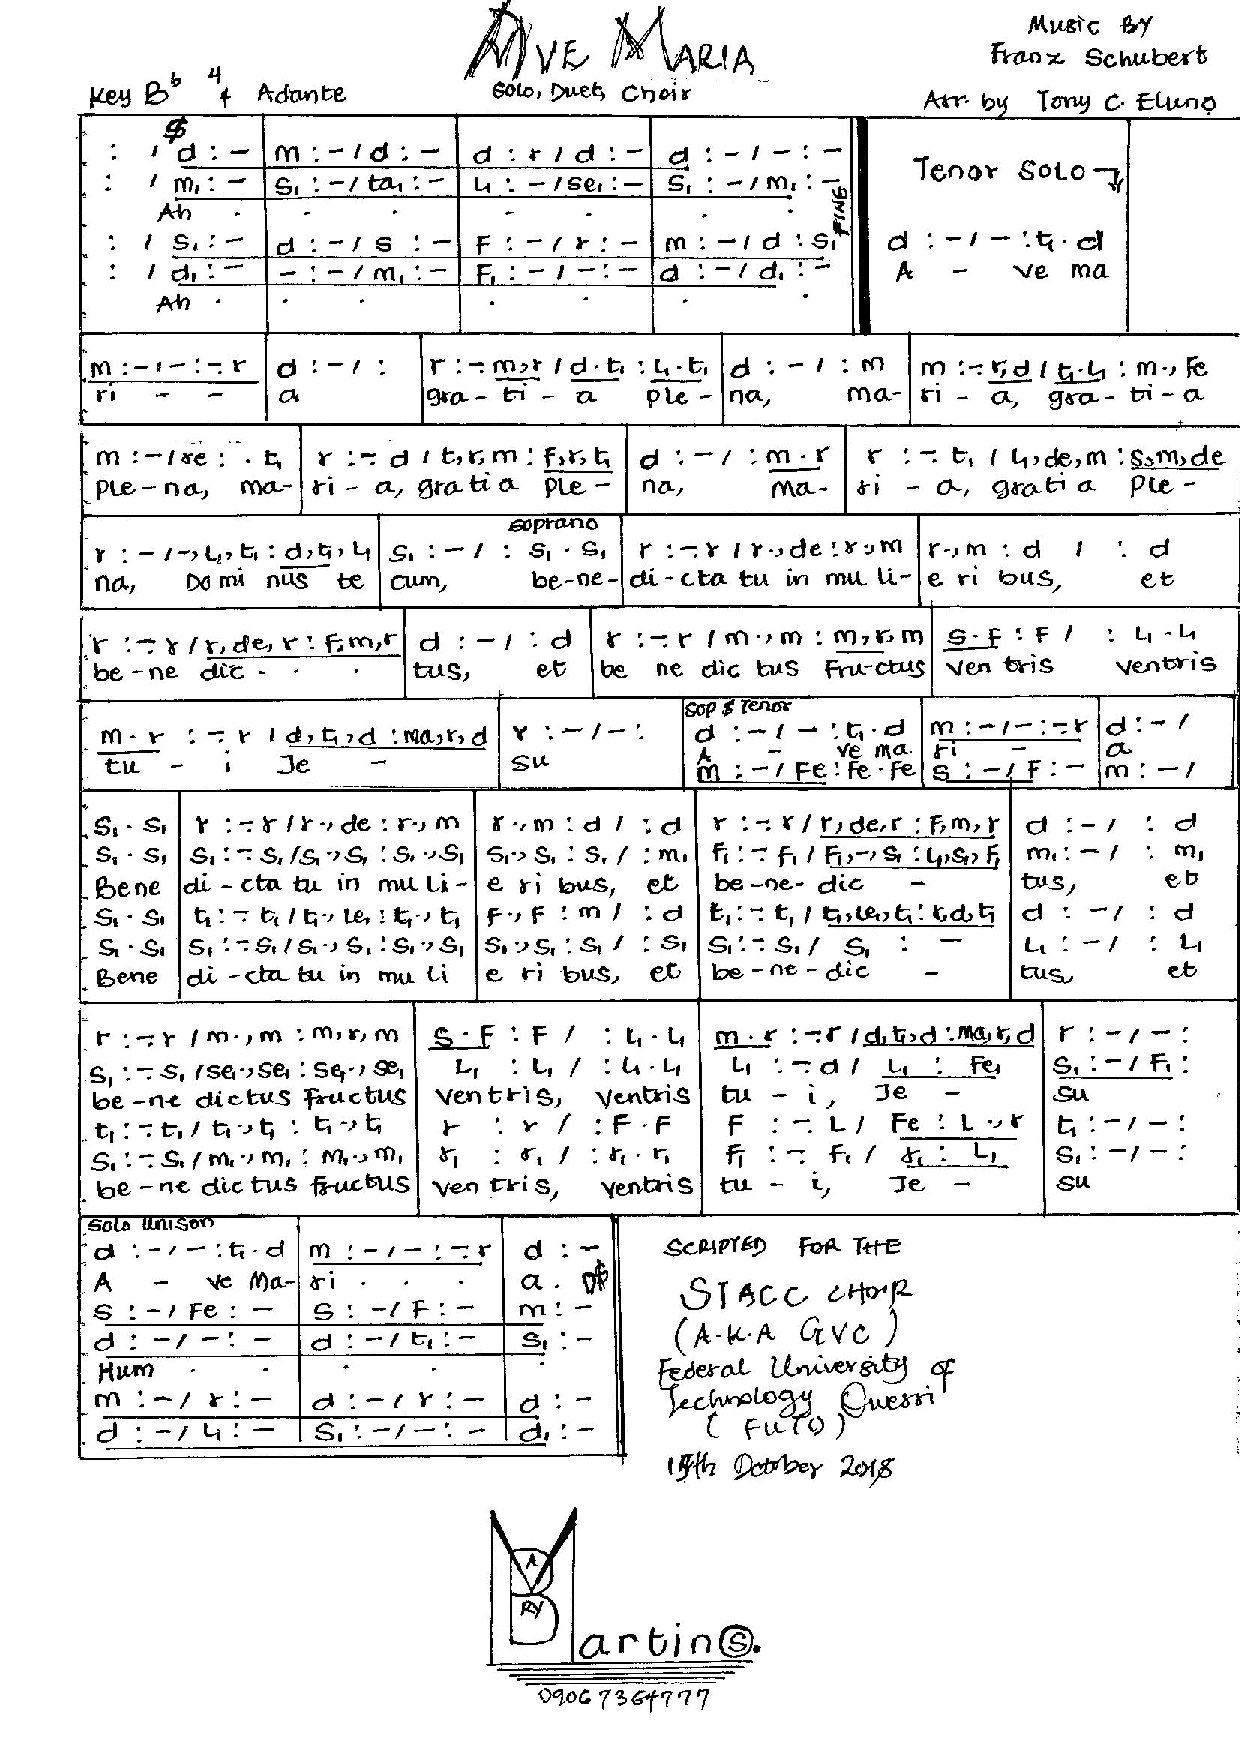 AVE MARIA
Music BY
Franz Schubert
Key Bb 4/4 Adante
Solo, Duet, Choir
Arr. by Tony C. Eluno
: / d : – | m : – / d : – | d : r / d : – | d : – / – : –
: / m₁ : – | s₁ : – / ta₁ : – | l₁ : – / se₁ : – | s₁ : – / m₁ : –
Ah . . . . . . .
: / s₁ : – | d : – / s : – | F : – / r : – | m : – / d : s₁
: / d₁ : – | – : – / m₁ : – | F₁ : – / – : – | d : – / d₁ : –
Ah . . . . . . .
FINE
Tenor Solo
d : – / – : t₁ . d
A – ve ma
m : – / – : – . r | d : – / : | r : – . m, r / d . t₁ : l₁ . t₁ | d : – / : m | m : – . r, d / t₁ . l₁ : m . , Fe
ri – – a gra – ti – a ple – na, ma- ri – a, gra – ti – a
m : – / re : . t₁ | r : – . d / t, r, m : f, r, t₁ | d : – / : m . r | r : – . t₁ / l₁, de, m : s, m, de
ple – na, ma- ri – a, gratia ple – na, ma- ri – a, gratia ple –
soprano
r : – / – , l₁, t₁ : d, t₁, l₁ | s₁ : – / : s₁ . s₁ | r : – . r / r . , de : r . , m | r . , m : d / : d
na, Domi nus te cum, be-ne- di-cta tu in mu li- e ri bus, et
r : – . r / r, de, r : f, m, r | d : – / : d | r : – . r / m . , m : m, r, m | s . F : F / : l₁ . l₁
be – ne dic - . . tus, et be ne dic tus Fructus ven tris ventris
m . r : – . r / d, t₁, d : ma, r, d | r : – / – :
tu – i Je – su
Sop & Tenor
d : – / – : t₁ . d | m : – / – : – . r | d : – /
A – ve ma. ri – a
m : – / Fe : Fe . Fe | s : – / F : – | m : – /
s₁ . s₁ | r : – . r / r . , de : r . , m | r . , m : d / : d | r : – . r / r, de, r : f, m, r | d : – / : d
s₁ . s₁ | s₁ : – . s₁ / s₁ . , s₁ : s₁ . , s₁ | s₁ . , s₁ : s₁ / : m₁ | f₁ : – . f₁ / f₁ . , s₁ : l₁, s₁, f₁ | m₁ : – / : m₁
Bene di – cta tu in mu li – e ri bus, et be-ne- dic – tus, et
s₁ . s₁ | t₁ : – . t₁ / t₁ . , le₁ : t₁ . , t₁ | F . , F : m / : d | t₁ : – . t₁ / t₁, le₁, t₁ : r, d, t₁ | d : – / : d
s₁ . s₁ | s₁ : – . s₁ / s₁ . , s₁ : s₁ . , s₁ | s₁ . , s₁ : s₁ / : s₁ | s₁ : – . s₁ / s₁ : – | l₁ : – / : l₁
Bene di – cta tu in mu li e ri bus, et be – ne – dic – tus, et
r : – . r / m . , m : m, r, m | s . F : F / : l₁ . l₁ | m . r : – . r / d, t₁, d : ma, r, d | r : – / – :
s₁ : – . s₁ / se₁ . , se₁ : se₁ . , se₁ | l₁ : l₁ / : l₁ . l₁ | l₁ : – . d / l₁ : Fe₁ | s₁ : – / F₁ :
be – ne dictus fructus ventris, ventris tu – i, Je – su
t₁ : – . t₁ / t₁ . , t₁ : t₁ . , t₁ | r : r / : F . F | F : – . L / Fe : L . , r | t₁ : – / – :
s₁ : – . s₁ / m₁ . , m₁ : m₁ . , m₁ | r₁ : r₁ / : r₁ . r₁ | f₁ : – . f₁ / r₁ : l₁ | s₁ : – / – :
be – ne dic tus fructus ven tris, ventris tu – i, Je – su
Solo Unison
d : – / – : t₁ . d | m : – / – : – . r | d : –
A – ve Ma- ri . . . a . D$
s : – / Fe : – | s : – / F : – | m : –
d : – / – : – | d : – / t₁ : – | s₁ : –
Hum . . . . .
m : – / r : – | d : – / r : – | d : –
d : – / l₁ : – | s₁ : – / – : – | d₁ : –
SCRIPTED FOR THE
STACC CHOIR
(A.K.A GVC)
Federal University of
Technology Owerri
(FUTO)
October 2018
MBARY
artin(S).
09067364777